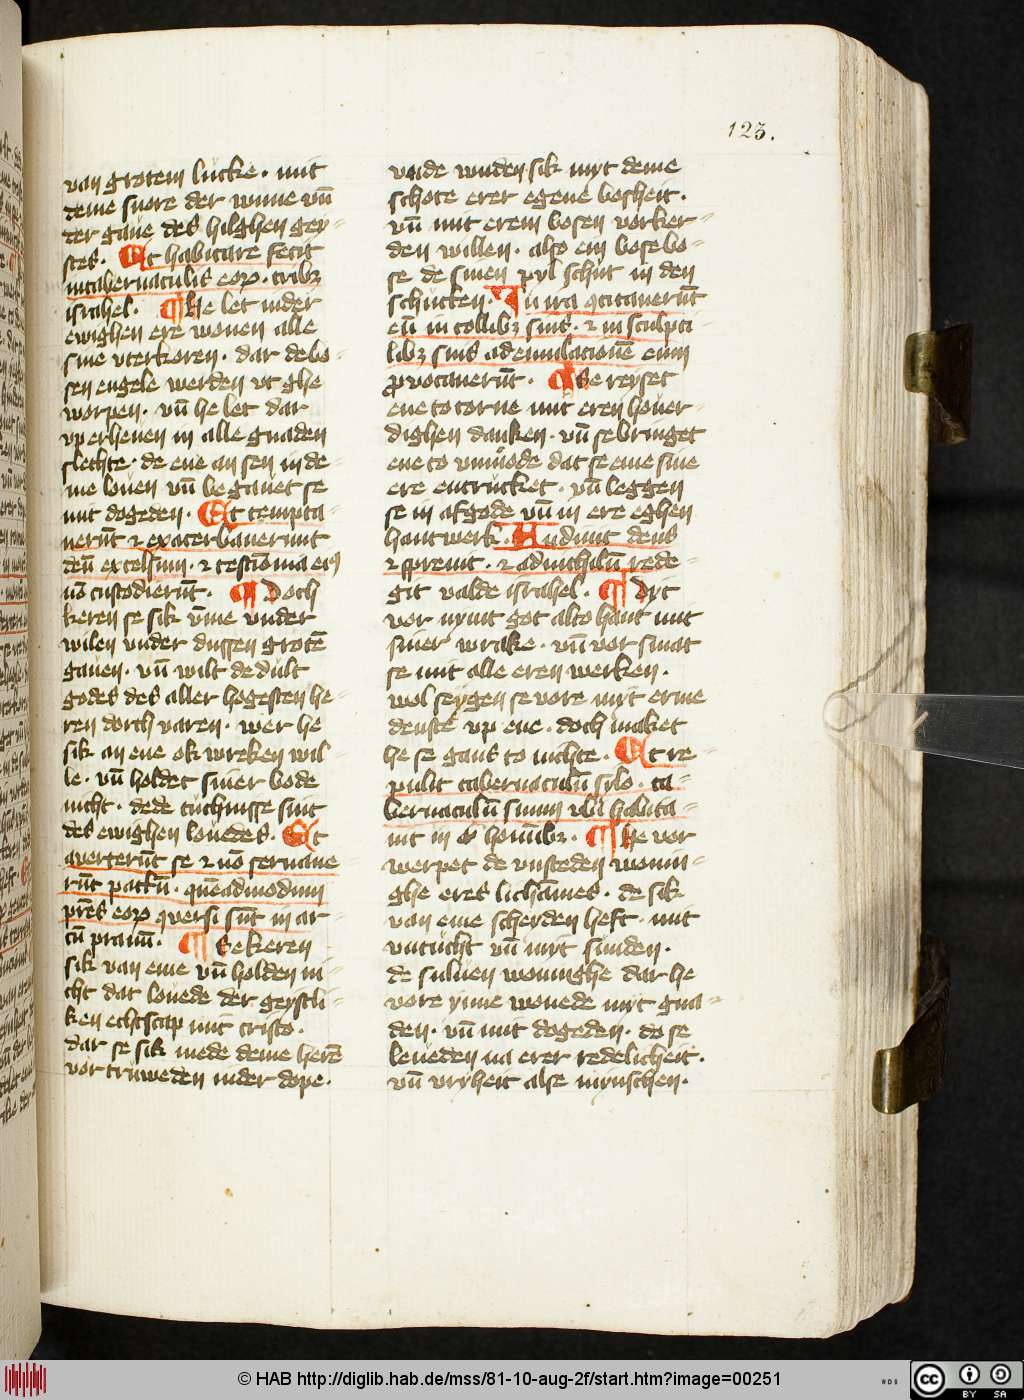 123.
van grotem lücke · mit
deme snore der winne vn̄
der gaue des hilghen gey-
stes. Et habitare fecit
in tabernaculis eoꝝ · tribꝫ
israhel. ¶ He let in der
ewighen ere wonen alle
sine vterkoren · dar de bo-
sen engele werden vt ghe
worpen · vn̄ he let dar
vp erheuen in alle gnaden
slechte · de ene an sen in de-
me louen vn̄ begauet se
mit dogeden · Et tempta-
uerūt ⁊ exacerbauerunt
deū excelsum · ⁊ testīonia eiꝰ
nō custodierūt. ¶ Doch
keren se sik vm̄e vnder
wilen vnder dussen grotē
gauen · vn̄ wilt de dult
godes des aller hogesten he-
ren dorch varen · wer he
sik an ene ok wreken wil-
le · vn̄ holdet siner bode
nicht · dede tuchnisse sint
des ewighen louedes. Et
auerterūt se ⁊ nō seruaue-
rūt pactū · quēadmodum
pr̄es eoꝝ ꝯuersi sūt in ar-
cū prauū. ¶ Se keren
sik van eme vn̄ holden ni-
cht dat louede der geystli-
ken echtscap mit cristo ·
dar se sik mede deme herē
vor truweden in der dope ·
vnde wnden sik myt deme
schote erer egene bosheit ·
vn̄ mit erem bosen vorker-
den willen · also ein bose bo-
se de sinen pyl schut in den
schucken · In ira ꝯcitauerūt
eū in collibꝫ suis · ⁊ in sculpti-
libꝫ suis ad emulacionē eum
ꝓuocauerūt · ¶ Se reyset
ene to torne mit eren houer-
dighen danken · vn̄ se bringet
ene to vnmode dat se eme sine
ere entrucket · vn̄ leggen
se in afgode vn̄ in ere eghen
hantwerk. Audiuit deus
⁊ spreuit · ⁊ ad nichilū rede-
git valde israhel. ¶ Dyt
vor nymt got alto hant mit
siner wrake · vn̄ vor smat
se mit alle eren werken ·
wol seygen se vore myt erme
denste vp ene · doch maket
he se gans to nichte. Et re-
pulit tabernaculū sylo · ta-
bernaculū suum vbi habita-
uit in hoīnibꝫ · ¶ He vor
werpet de vnsteden wonin-
ghe eres lichāmes · de sik
van eme scherden heft · mit
vntucht vn̄ myt sunden ·
de suluen woninghe dar he
vore ynne wonede myt gna-
den · vn̄ mit dogeden · do se
leueden na erer redelicheit ·
vn̄ vryheit alse mynschen ·
© HAB http://diglib.hab.de/mss/81-10-aug-2f/start.htm?image=00251
HAB
cc BY SA